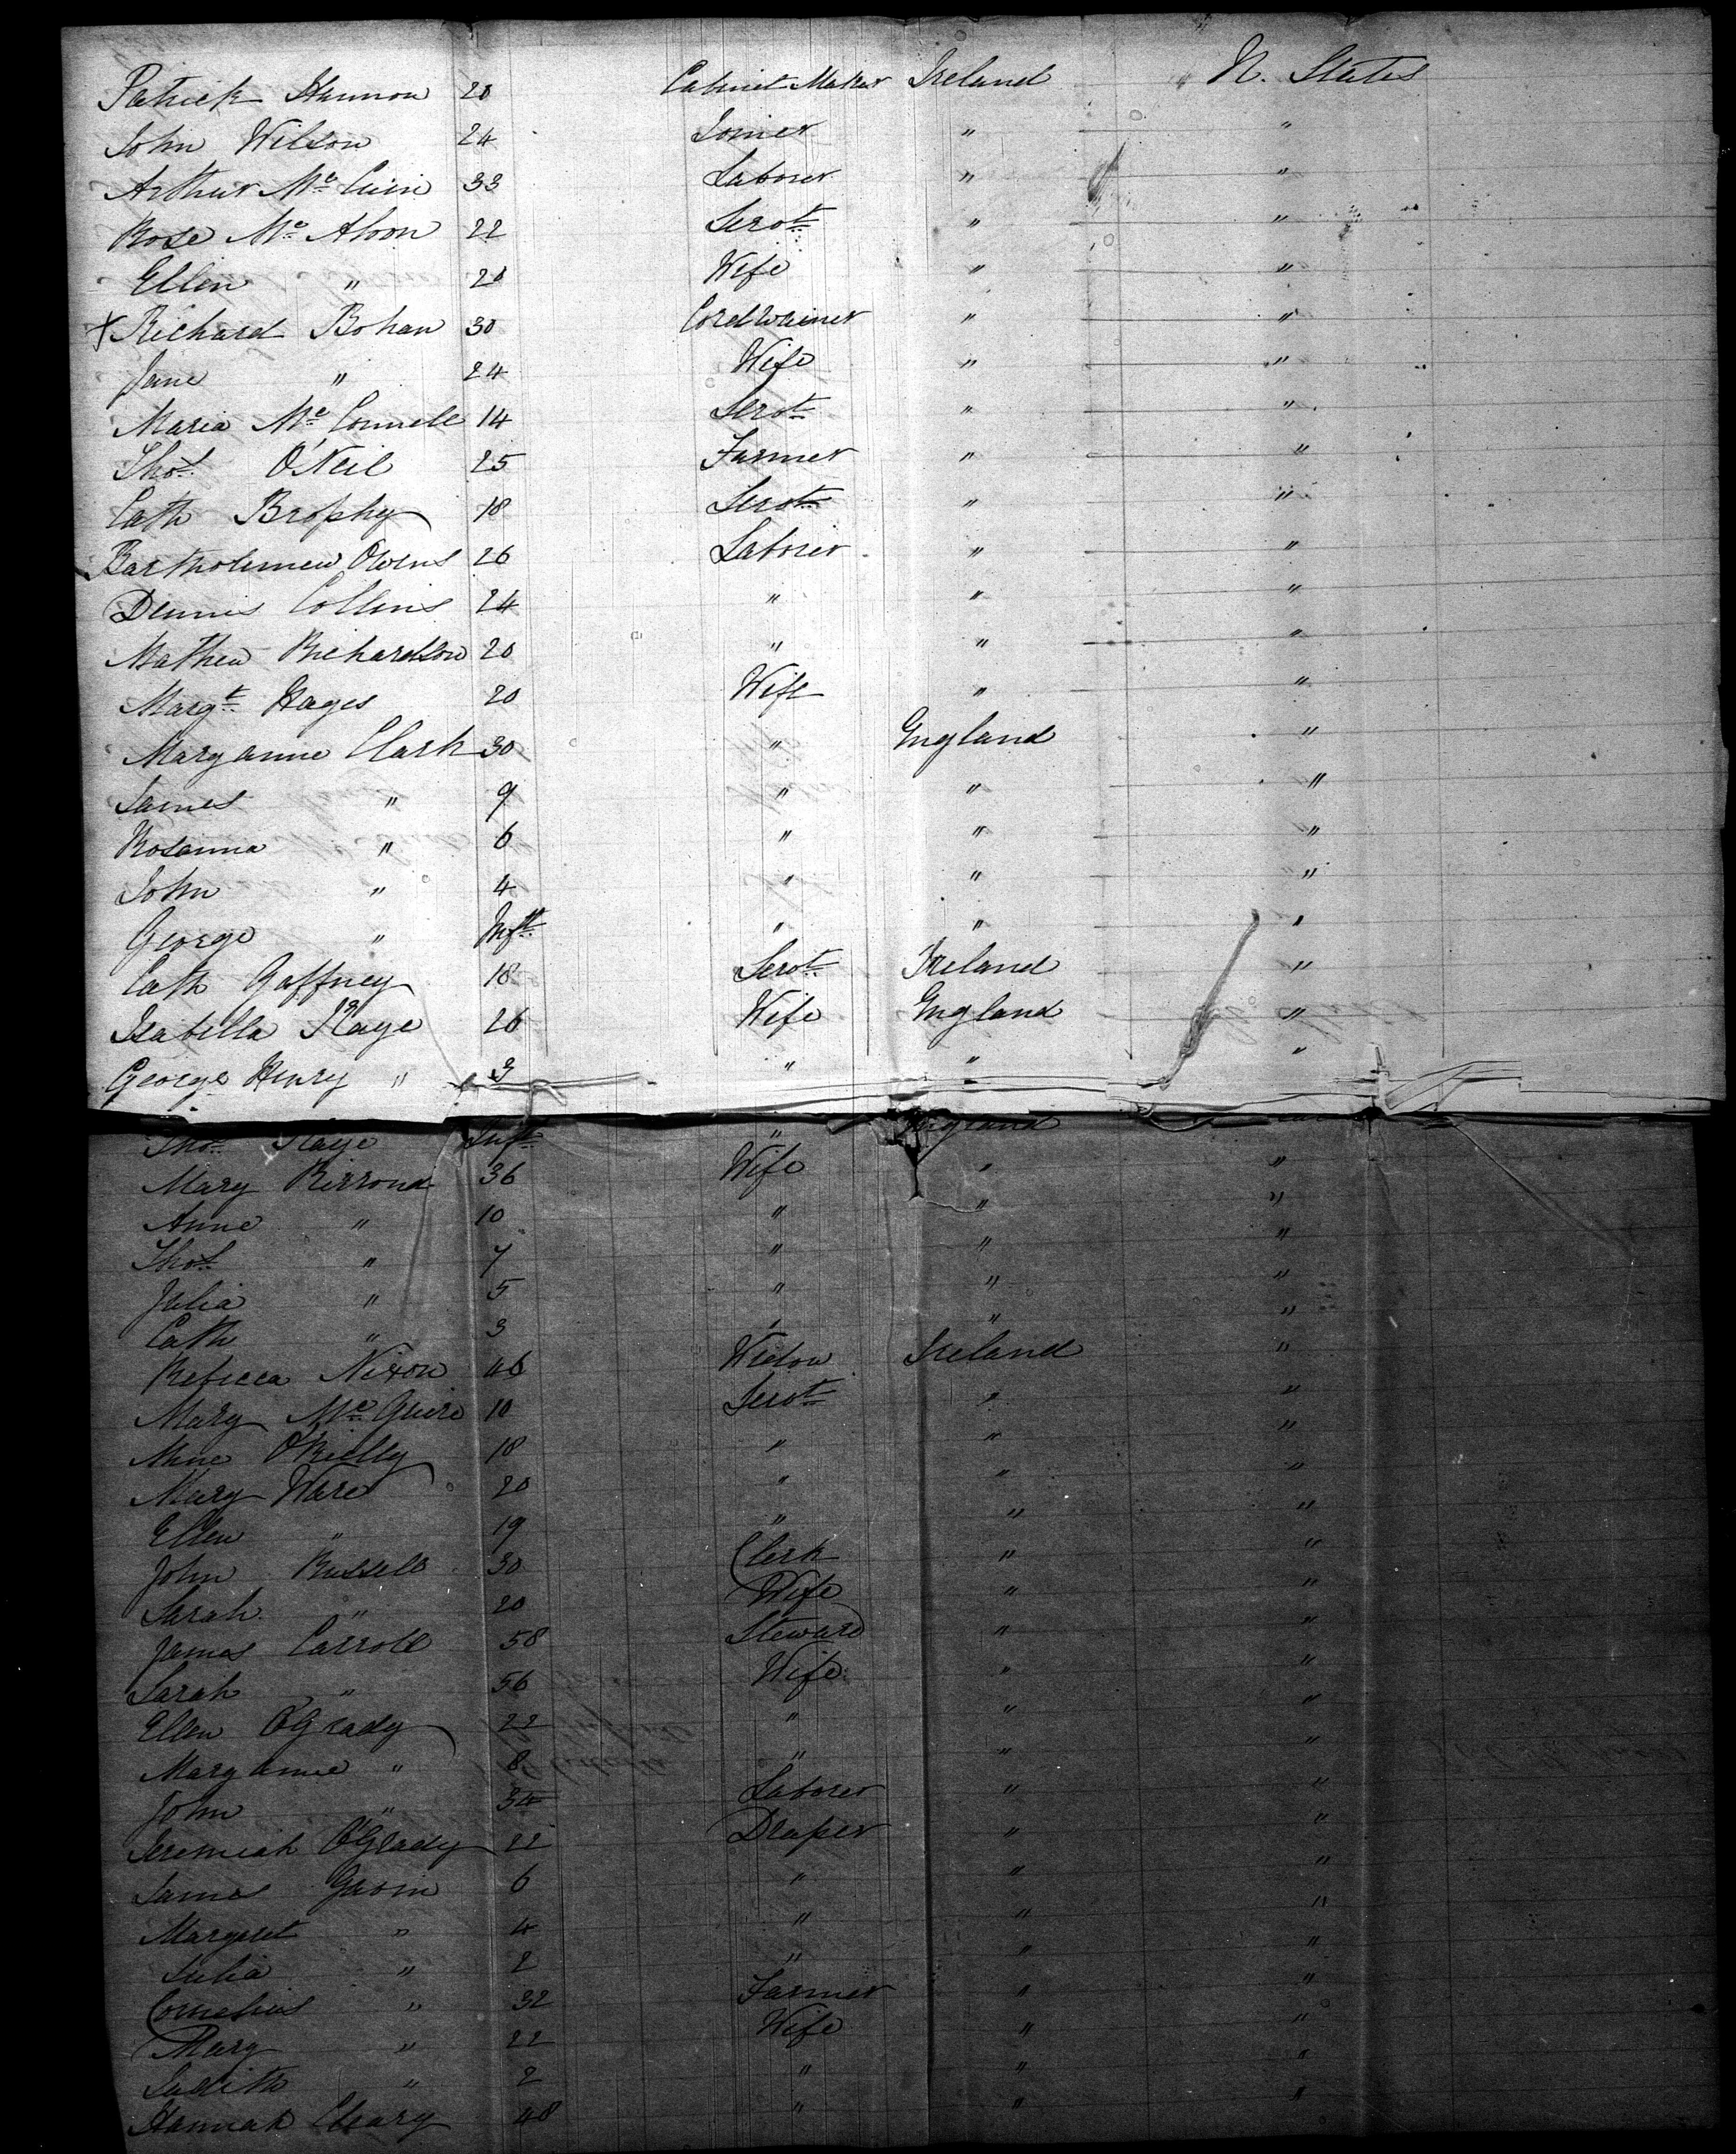 Patrick Hannon 20 Cabinet Maker Ireland U. States
John Wilson 24 Joiner " "
Arthur Mc 33 Laborer " "
Rose Mc 22 Servt " "
Ellen " 20 Wife " "
X Richard Bohan 30 Cordwainer " "
Jane " 24 Wife " "
Maria Mc Connell 14 Servt " "
Thos O'Neil 25 Farmer " "
Cath Brophy 18 Servt " "
Bartholemew Owens 26 Laborer " "
Dennis Collins 24 " " "
Mathew Richardson 20 " " "
Margt Hayes 20 Wife " "
Maryanne Clark 30 " England "
James " 9 " " "
Rosanna " 6 " " "
John " 4 " " "
George " Inft " " "
Cath Gaffney 18 Servt Ireland "
Isabella Kaye 26 Wife England "
George Henry " 3 " " "
Thos Kaye Inft " England
Mary 36 Wife " "
Anne " 10 " " "
Thos " 7 " " "
Julia " 5 " " "
Cath " 3 " " "
Rebecca Nixon 46 Widow Ireland "
Mary Mc Guire 10 Servt " "
Anne O'Rielly 18 " " "
Mary Ware 20 " " "
Ellen " 19 " " "
John Russell 30 Clerk " "
Sarah " 20 Wife " "
James Carroll 58 Steward " "
Sarah " 56 Wife " "
Ellen O'Grady 22 " " "
Maryanne " 8 " " "
John " 34 Laborer " "
Jeremiah O'Grady 22 Draper " "
James Gavin 6 " " "
Margaret " 4 " " "
Julia " 2 " " "
Cornelius " 32 Farmer " "
Mary " 22 Wife " "
Judith " 2 " " "
Hannah Cleary 48 " " "